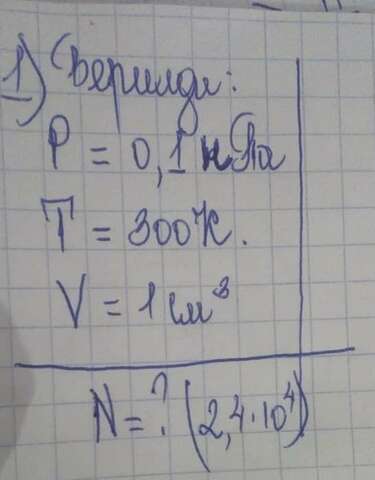 1) Берилди:
P = 0,1 нПа
T = 300К.
V = 1 см³
N = ? (2,4·10⁴)